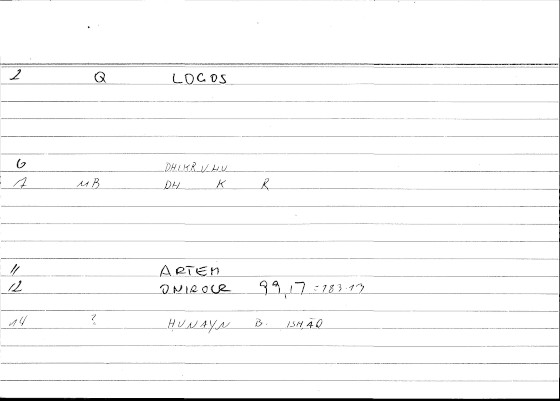 2 Q LOGOS
6 DHIKRUHU
7 MB DH K R
11 ARTEM
12 ONIROCR 99,17 = 183.13
14 ? HUNAYN B. ISHĀQ